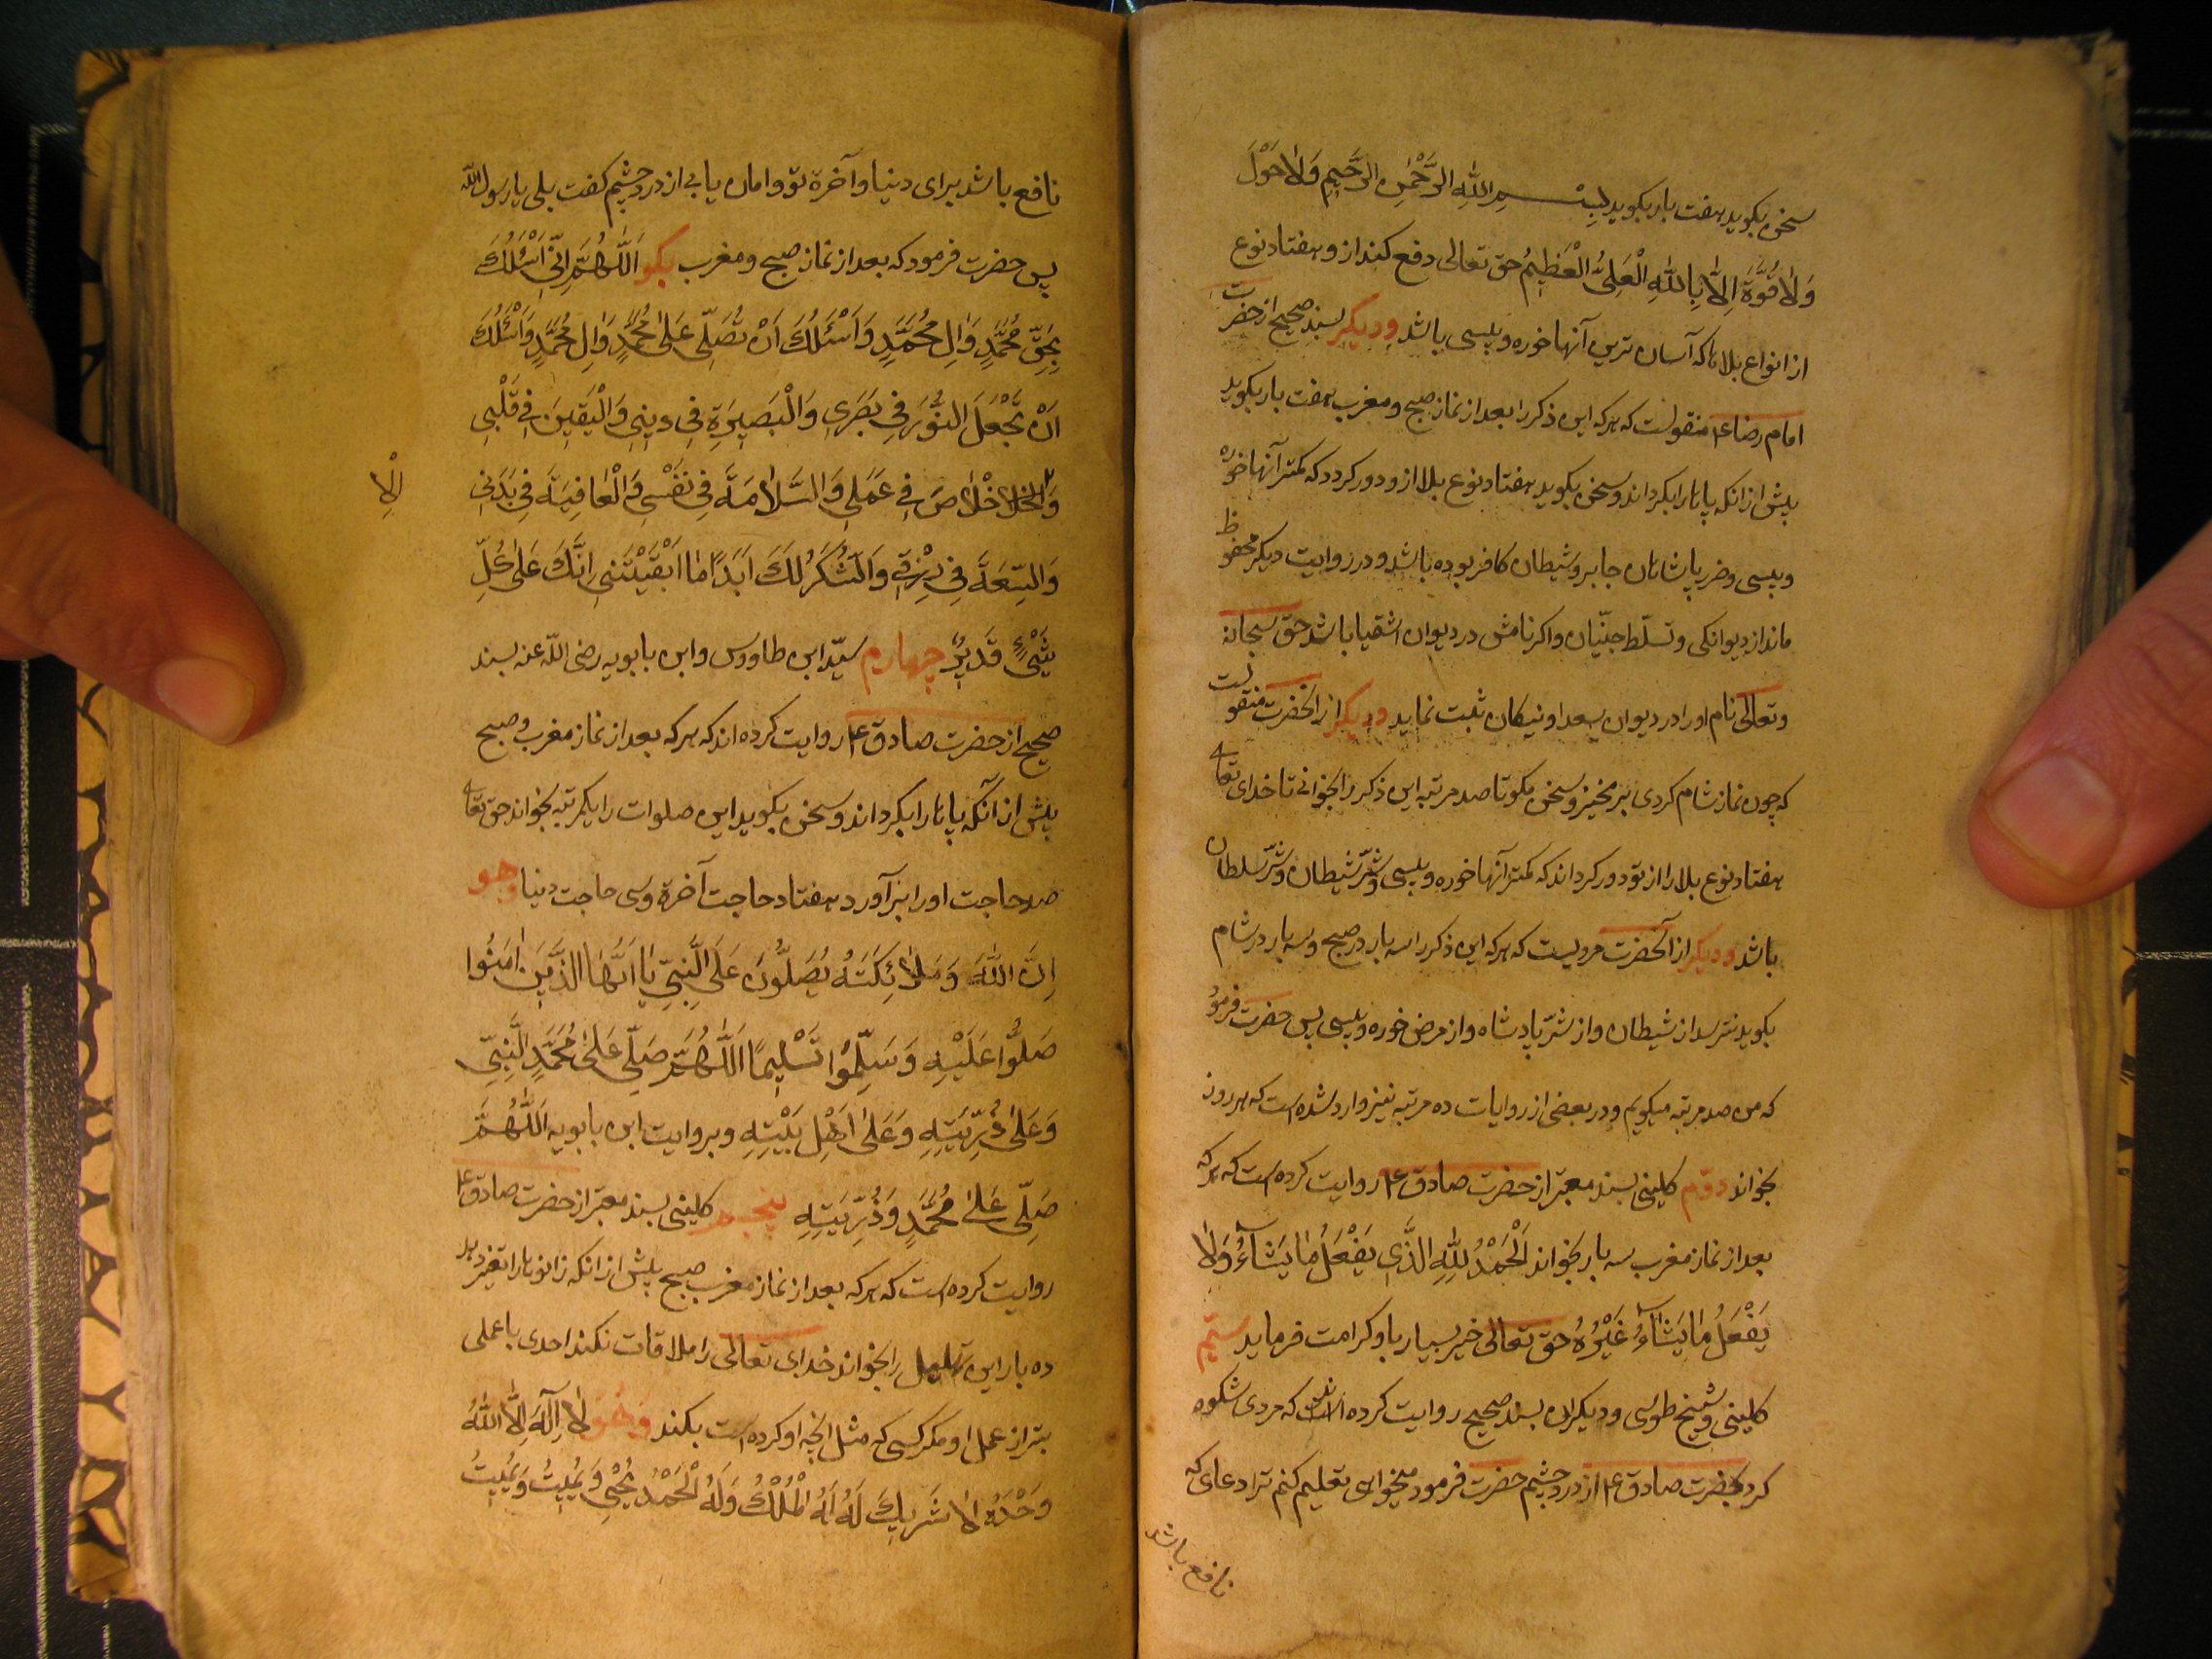 سخن بکوید هفت بار بکوید بِسْــمِ اللّٰهِ الرَّحْمٰنِ الرَّحٖیمِ وَلاٰ حَوْلَ
وَلاٰ قُوَّةَ اِلاّٰ بِاللّٰهِ الْعَلِیِّ الْعَظٖیمُ حق تعالی دفع کند از و هفتاد نوع
از انواع بلاها که آسان ترین آنها خوره و پیسی باشد ودیکر بسند صحیح از حضرت
امام رضا ع منقولست که هرکه این ذکر را بعد از نماز صبح و مغرب هفت بار بکوید
پیش از انکه پاها را بکرداند و سخن بکوید هفتاد نوع بلا از و دور کردد که کمتر آنها خوره
و پیسی و ضر پاشاهان جابر و شیطان کافر بوده باشد و در روایت دیکر محفوظ
ماند از دیوانکی و تسلّط جنّیان و اکر نامش در دیوان اشقیا باشد حق سبحانه
وتعالی نام او را در دیوان سعدا و نیکان ثبت نماید ودیکر از انحضرت منقولست
که چون نماز شام کردی برمخیز و سخن مکو تا صد مرتبه این ذکر را بخوانی تا خدای تعالی
هفتاد نوع بلا را از تو دور کرداند که کمتر آنها خوره و پیسی و شرّ شیطان و شرّ سلطان
باشد ودیکر از آنحضرت مرویست که هرکه این ذکر را سه بار در صبح و سه بار در شام
بکوید نترسد از شیطان و از شرّ پادشاه و از مرض خوره و پیسی پس حضرت فرمود
که من صد مرتبه میکویم و در بعضی از روایات ده مرتبه نیز وارد شده است که هر روز
بخواند دوّم کلینی بسند معتبر از حضرت صادق ع روایت کرده است که هرکه
بعد از نماز مغرب سه بار بخواند اَلْحَمْدُ لِلّٰهِ الَّذٖی یَفْعَلُ مٰا یَشٰآءُ وَلاٰ
یَفْعَلُ مٰا یَشٰآءُ غَیْرُهُ حق تعالی خیر بسیار باو کرامت فرماید سیّم
کلینی و شیخ طوسی و دیکران بسند صحیح روایت کرده اند که مردی شکوه
کرد بحضرت صادق ع از درد چشم حضرت فرمود میخواهی تعلیم کنم ترا دعای که
نافع باشد
نافع باشد برای دنیا و آخرة تو و امان یابی از درد چشم کفت بلی یا رسول اللّٰه
پس حضرت فرمود که بعد از نماز صبح و مغرب بکو اَللّٰهُمَّ اِنّٖی اَسْئَلُكَ
بِحَقِّ مُحَمَّدٍ وَاٰلِ مُحَمَّدٍ وَاَسْئَلُكَ اَنْ تُصَلِّیَ عَلیٰ مُحَمَّدٍ وَاٰلِ مُحَمَّدٍ وَاَسْئَلُكَ
اَنْ تَجْعَلَ النُّوُرَ فٖی بَصَرٖی وَالْبَصٖیرَةِ فٖی دٖینٖی وَالْیَقٖینَ فٖی قَلْبٖی
وَالْاخْلاٰصَ فٖی عَمَلٖی وَالسَّلاٰمَةَ فٖی نَفْسٖی وَالْعٰافِیَةَ فٖی بَدَنٖی
الْاِ
وَالسِّعَةَ فٖی رِزْقٖی وَالشُّکَرُ لَكَ اَبَدًا مٰا اَبْقَیْتَنٖی اِنَّكَ عَلیٰ کُلِّ
شَیْءٍ قَدٖیرٌ چهارم سیّد ابن طاووس و ابن بابویه رضی اللّٰه عنه بسند
صحیح از حضرت صادق ع روایت کرده اند که هرکه بعد از نماز مغرب و صبح
پیش از آنکه پاها را بکرداند و سخن بکوید این صلوات را یکمرتبه بخواند حق تعالی
صد حاجت او را بر آورد هفتاد حاجت آخرة و سی حاجت دنیا وهو
اِنَّ اللّٰهَ وَمَلاٰئِکَتَهُ یُصَلُّونَ عَلَی النَّبِیِّ یٰا اَیُّهَا الَّذٖینَ اٰمَنُوا
صَلُّوا عَلَیْهِ وَسَلِّمُوا تَسْلٖیمًا اَللّٰهُمَّ صَلِّ عَلیٰ مُحَمَّدٍ النَّبِیِّ
وَعَلیٰ ذُرِّیَّتِهِ وَعَلیٰ اَهْلِ بَیْتِهِ و بروایت ابن بابویه اَللّٰهُمَّ
صَلِّی عَلیٰ مُحَمَّدٍ وَذُرِّیَّتِهِ پنجم کلینی بسند معتبر از حضرت صادق ع
روایت کرده است که هرکه بعد از نماز مغرب صبح پیش از انکه زانوها را تغییر دهد
ده بار این تهلیل را بخواند خدای تعالی را ملاقات نکند احدی باعملی
بتر از عمل او مکر کسی که مثل انچه او کرده است بکند وهو لاٰ اِلٰهَ اِلاَّ اللّٰهُ
وَحْدَهُ لاٰ شَرٖیكَ لَهُ لَهُ الْمُلْكُ وَلَهُ الْحَمْدُ یُحْیٖی وَیُمٖیتُ وَیُمٖیتُ